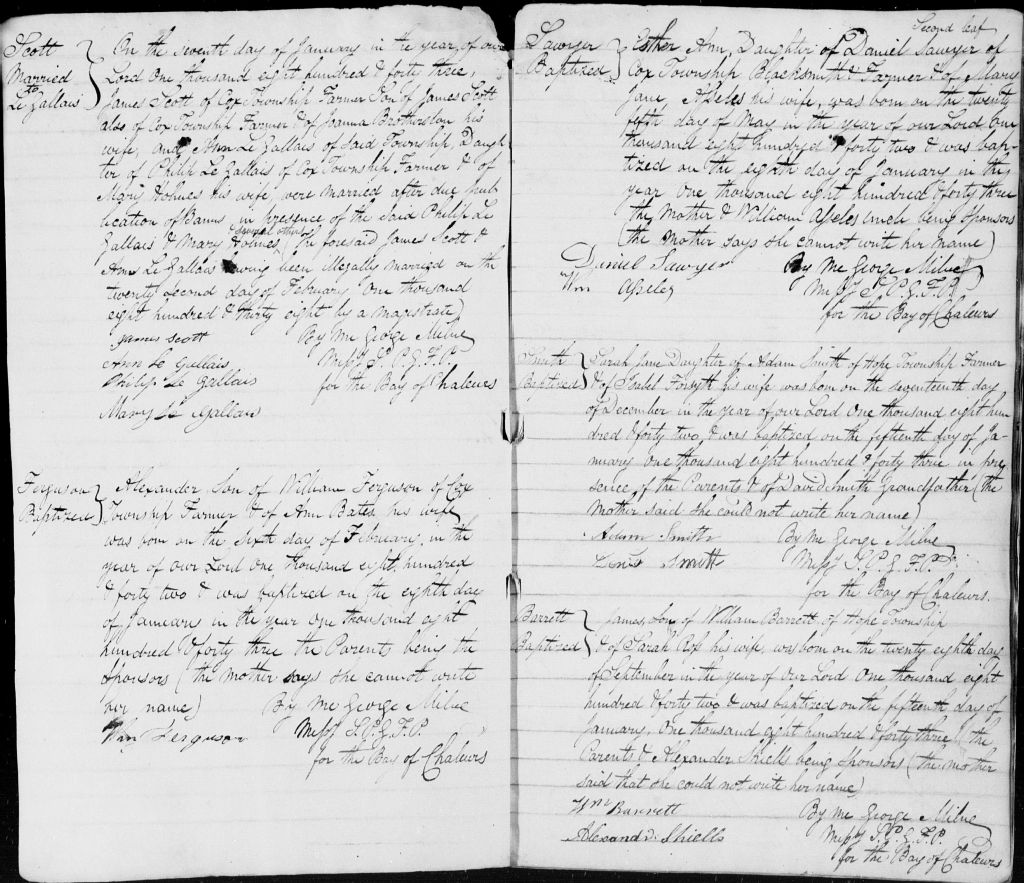 Scott
Married
to
Le Gallais
On the seventh day of January in the year of our
Lord One thousand eight hundred & forty three,
James Scott of Cox Township Farmer Son of James Scott
also of Cox Township Farmer & of Joanna Brotherston his
wife, and Ann Le Gallais of said Township, Daugh-
ter of Philip Le Gallais of Cox Township Farmer & of
Mary Holmes his wife, were married after due pub
lication of Banns, in presence of the said Philip Le
Gallais & Mary Holmes & several others (the foresaid James Scott &
Ann Le Gallais having been illegally married on the
twenty second day of February One thousand
eight hundred & thirty eight by a magistrate)
James Scott
Ann Le Gallais
Philip Le Gallais
Mary Le Gallais
By Me George Milne
Missy S.P.G.F.P.
for the Bay of Chaleurs
Ferguson
Baptized
Alexander, Son of William Ferguson of Cox
Township Farmer & of Ann Bates his wife
was born on the sixth day of February, in the
year of our Lord One thousand eight hundred
& forty two & was baptized on the eighth day
of January in the year One thousand eight
hundred & forty three the Parents being the
Sponsors (the mother says she cannot write
her name)
Wm Ferguson
By Me George Milne
Missy S.P.G.F.P.
for the Bay of Chaleurs
Second leaf
Sawyer
Baptized
Esther Ann, Daughter of Daniel Sawyer of
Cox Township Blacksmith & Farmer & of Mary
Jane Apeles his wife, was born on the twenty
fifth day of May in the year of our Lord One
thousand eight hundred & forty two & was bap-
tized on the eighth day of January in the
year One thousand eight hundred & forty three
the Mother & William Apeles Uncle being Sponsors
(the mother says she cannot write her name)
Daniel Sawyer
Wm Apeles
By Me George Milne
Missy S.P.G.F.P.
for the Bay of Chaleurs
Smith
Baptized
Sarah Jane Daughter of Adam Smith of Hope Township Farmer
& of Isabel Forsyth his wife was born on the seventeenth day
of December in the year of our Lord One thousand eight hun
dred & forty two, & was baptized on the fifteenth day of Ja-
nuary One thousand eight hundred & forty three in pre
sence of the Parents & of David Smith Grandfather (the
Mother said she could not write her name)
Adam Smith
Smith
By Me George Milne
Missy S.P.G.F.P.
for the Bay of Chaleurs.
Barrett
Baptized
James, Son of William Barrett of Hope Township
& of Sarah Ross his wife, was born on the twenty eighth day
of September in the year of our Lord One thousand eight
hundred & forty two & was baptized on the fifteenth day of
January, One thousand eight hundred & forty three, the
Parents & Alexander Shiells being Sponsors (the mother
said that she could not write her name)
Wm Barrett
Alexandr Shiells
By me George Milne
Missy S.P.G.F.P.
for the Bay of Chaleurs